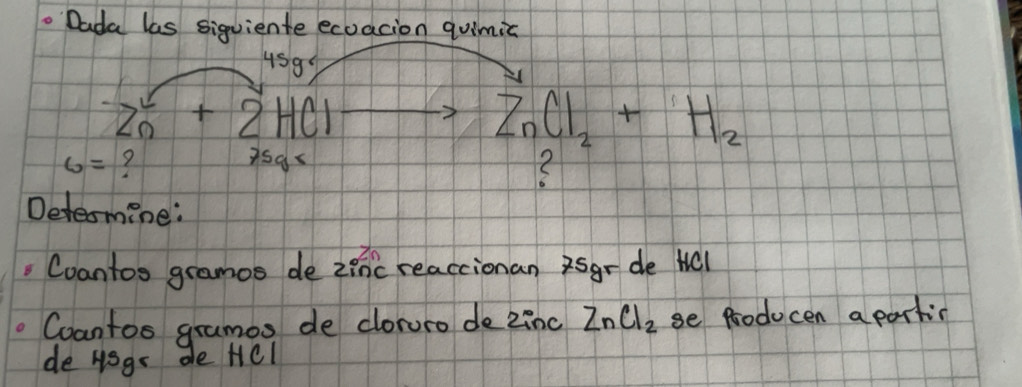 • Dada las siguiente ecuacion quimic
45gr
Zn + 2HCl → ZnCl₂ + H₂
G = ? 75gr ?
Determine:
Zn
• Cuantos gramos de zinc reaccionan 75gr de HCl
• Cuantos gramos de cloruro de zinc ZnCl₂ se Producen apartir
de 45gr de HCl